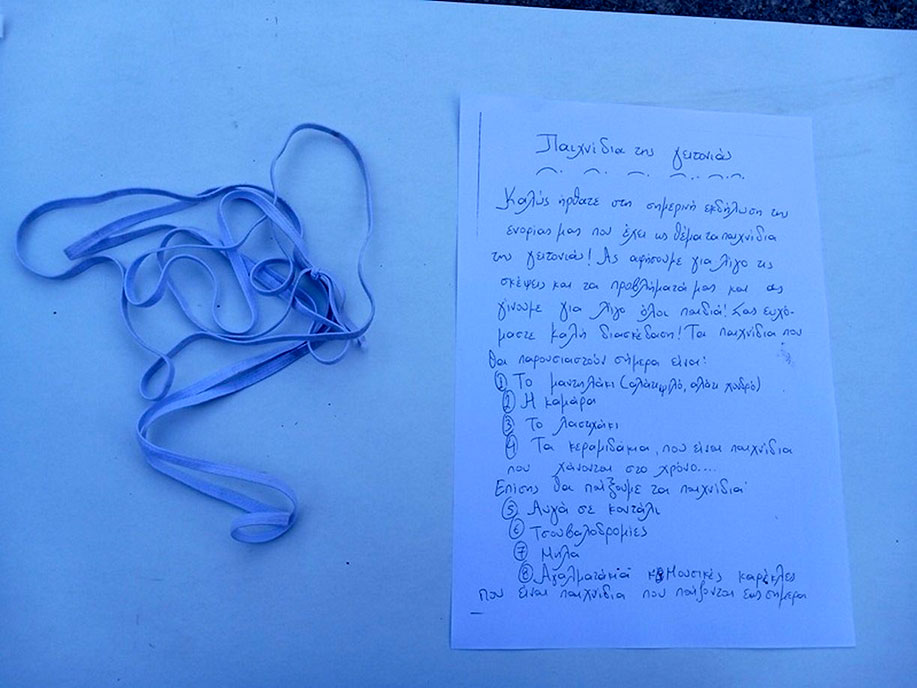 Παιχνίδια της γειτονιάς
Καλώς ήρθατε στη σημερινή εκδήλωση της
ενορίας μας που έχει ως θέμα τα παιχνίδια
της γειτονιάς! Ας αφήσουμε για λίγο τις
σκέψεις και τα προβλήματά μας και ας
γίνουμε για λίγο όλοι παιδιά! Σας ευχό-
μαστε καλή διασκέδαση! Τα παιχνίδια που
θα παρουσιαστούν σήμερα είναι:
① Το μαντηλάκι (αλάτι ψιλό, αλάτι χοντρό)
② Η καμάρα
③ Το λαστιχάκι
④ Τα κεραμιδάκια, που είναι παιχνίδια
που χάνονται στο χρόνο....
Επίσης θα παίξουμε τα παιχνίδια
⑤ Αυγά σε κουτάλι
⑥ Τσουβαλοδρομίες
⑦ Μήλα
⑧ Αγαλματάκια Μουσικές καρέκλες
που είναι παιχνίδια που παίζονται έως σήμερα